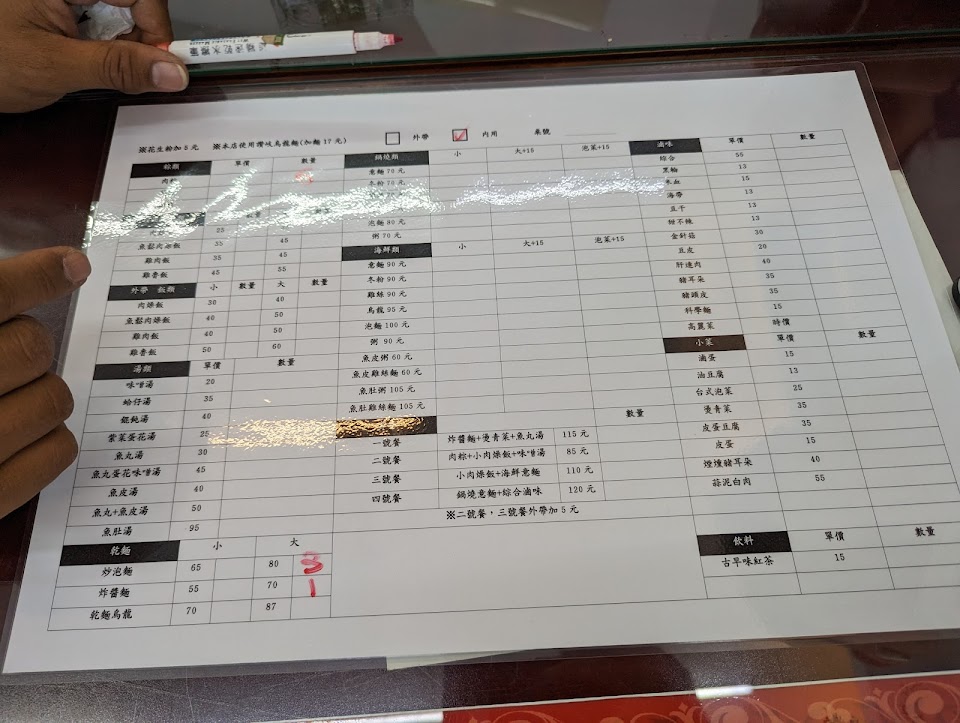 ※花生粉加5元 ※本店使用讚岐烏龍麵(加麵17元) 外帶 內用 桌號
粽類 單價 數量
小 數量 大 數量
25
魚鬆肉燥飯 35 45
雞肉飯 35 45
雞魯飯 45 55
外帶 飯類 小 數量 大 數量
肉燥飯 30 40
魚鬆肉燥飯 40 50
雞肉飯 40 50
雞魯飯 50 60
湯類 單價 數量
味噌湯 20
蛤仔湯 35
餛飩湯 40
紫菜蛋花湯 25
魚丸湯 30
魚丸蛋花味噌湯 45
魚皮湯 40
魚丸+魚皮湯 50
魚肚湯 95
乾麵 小 大
炒泡麵 65 80 3
炸醬麵 55 70 1
乾麵烏龍 70 87
鍋燒類 小 大+15 泡菜+15
意麵 70元
冬粉 70元
泡麵 80元
粥 70元
海鮮類 小 大+15 泡菜+15
意麵 90元
冬粉 90元
雞絲 90元
烏龍 95元
泡麵 100元
粥 90元
魚皮粥 60元
魚皮雞絲麵 60元
魚肚粥 105元
魚肚雞絲麵 105元
數量
一號餐 炸醬麵+燙青菜+魚丸湯 115元
二號餐 肉粽+小肉燥飯+味噌湯 85元
三號餐 小肉燥飯+海鮮意麵 110元
四號餐 鍋燒意麵+綜合滷味 120元
※二號餐，三號餐外帶加5元
滷味 單價 數量
綜合 55
黑輪 13
米血 15
海帶 13
豆干 13
甜不辣 13
金針菇 30
豆皮 20
肝連肉 40
豬耳朵 35
豬頭皮 35
科學麵 15
高麗菜 時價
小菜 單價 數量
滷蛋 15
油豆腐 13
台式泡菜 25
燙青菜 35
皮蛋豆腐 35
皮蛋 15
煙燻豬耳朵 40
蒜泥白肉 55
飲料 單價 數量
古早味紅茶 15